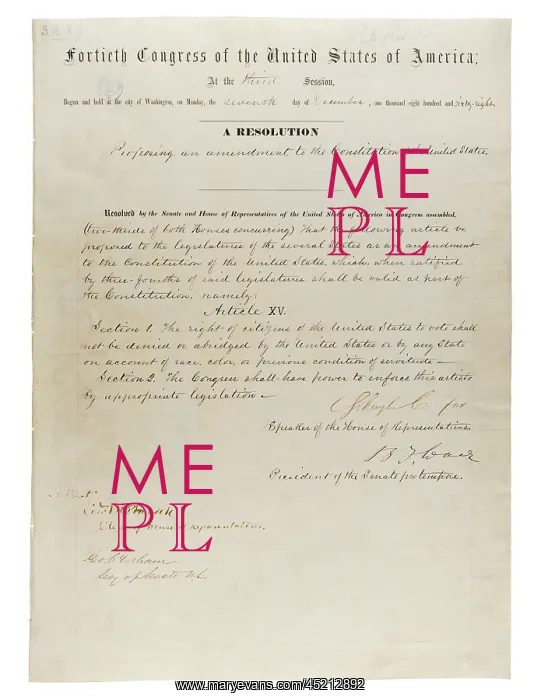 S.R.8
Fortieth Congress of the United States of America;
At the third Session,
Begun and held at the city of Washington, on Monday, the seventh day of December, one thousand eight hundred and sixty-eight.
A RESOLUTION
Proposing an amendment to the Constitution of the United States.
Resolved by the Senate and House of Representatives of the United States of America in Congress assembled,
(two-thirds of both Houses concurring) That the following article be
proposed to the legislatures of the several States as an amendment
to the Constitution of the United States, which, when ratified
by three-fourths of said legislatures shall be valid as part of
the Constitution, namely:
Article XV.
Section 1. The right of citizens of the United States to vote shall
not be denied or abridged by the United States or by any State
on account of race, color, or previous condition of servitude—
Section 2. The Congress shall have power to enforce this article
by appropriate legislation—
Schuyler Colfax
Speaker of the House of Representatives.
B F Wade
President of the Senate pro tempore.
ME
PL
ME
PL
Attest
Clerk of House of representatives.
Geo C Gorham
Secy of Senate U.S.
www.maryevans.com/45212892